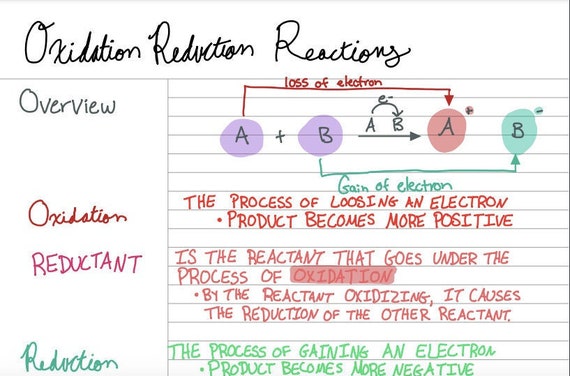 Oxidation Reduction Reactions
Overview
loss of electron
e-
A + B A B A + B -
Gain of electron
Oxidation
THE PROCESS OF LOOSING AN ELECTRON
• PRODUCT BECOMES MORE POSITIVE
REDUCTANT
IS THE REACTANT THAT GOES UNDER THE
PROCESS OF OXIDATION
• BY THE REACTANT OXIDIZING, IT CAUSES
THE REDUCTION OF THE OTHER REACTANT.
Reduction
THE PROCESS OF GAINING AN ELECTRON
• PRODUCT BECOMES MORE NEGATIVE